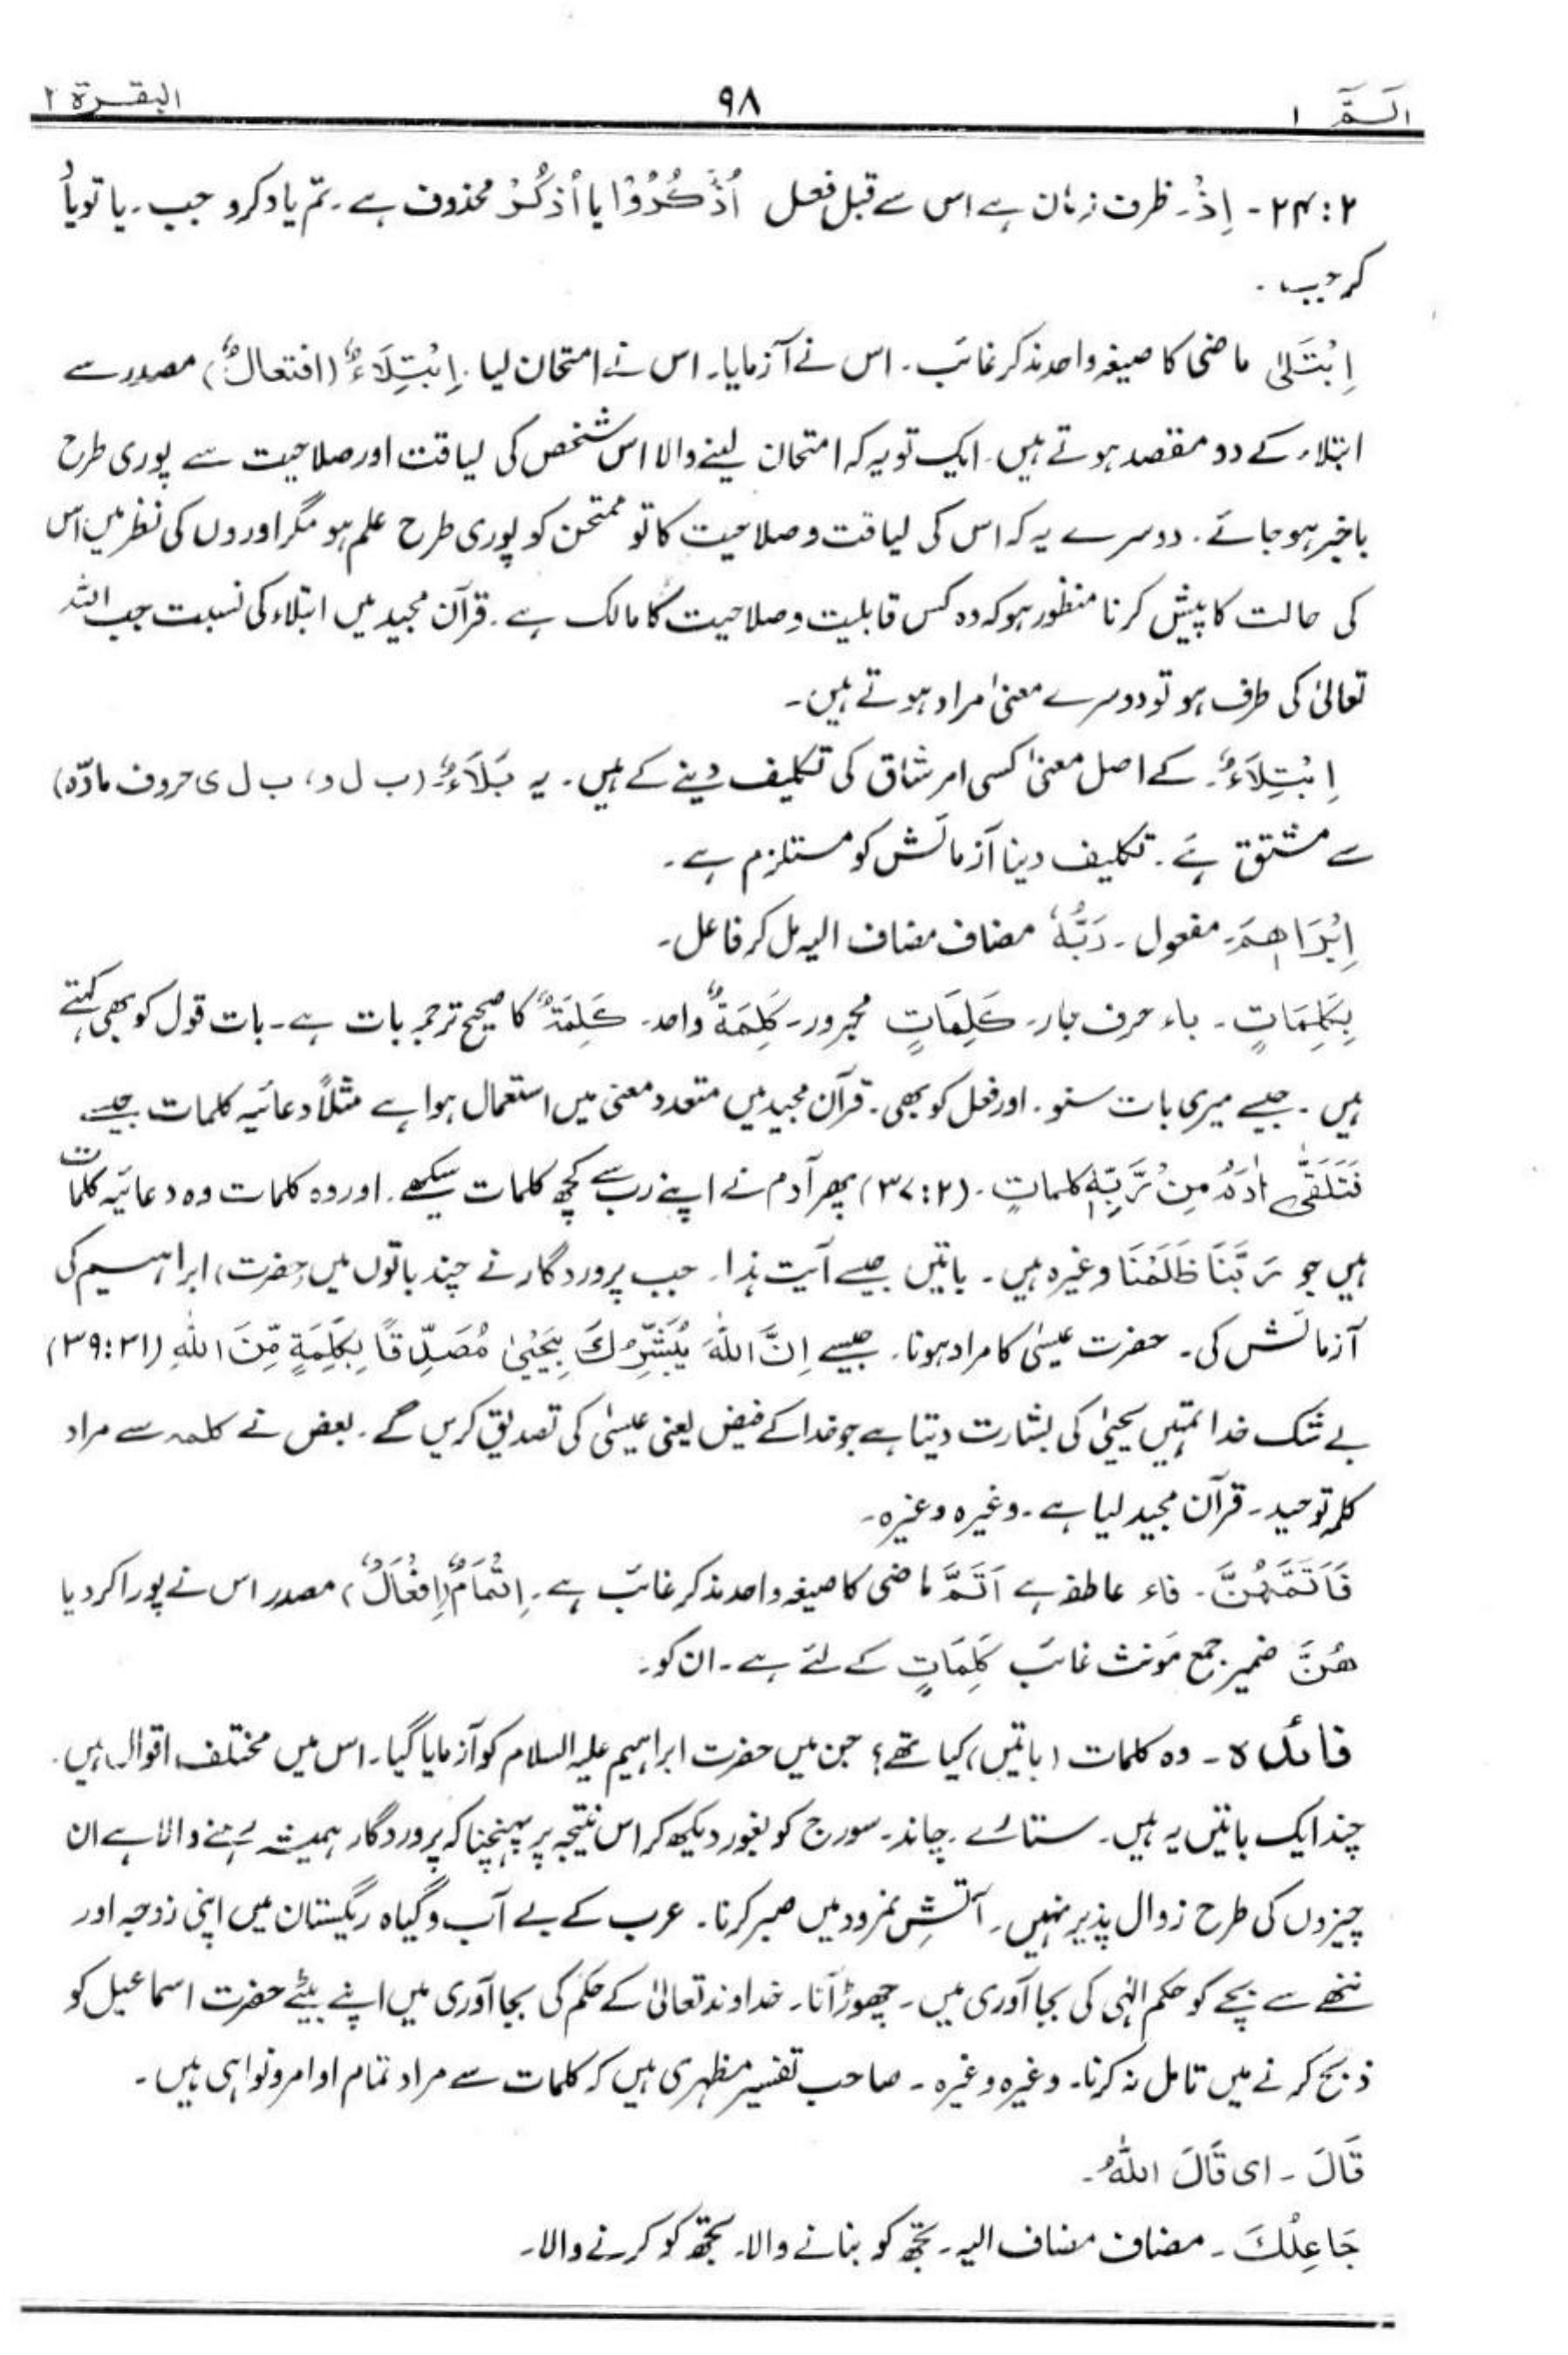 الٓـمّٓ ۱ ۹۸ البقرة ۲
۲:۱۲۴ - اِذْ۔ ظرف زمان ہے اس سے قبل فعل اُذْكُرُوْا یا اُذْكُرْ محذوف ہے۔ تم یاد کرو جب۔ یا تو یاد
کر جب ۔
اِبْتَلٰی ماضی کا صیغہ واحد مذکر غائب ۔ اس نے آزمایا۔ اس نے امتحان لیا۔ اِبْتِلَاءٌ (افتعالٌ) مصدر سے
ابتلاء کے دو مقصد ہوتے ہیں۔ ایک تو یہ کہ امتحان لینے والا اس شخص کی لیاقت اور صلاحیت سے پوری طرح
باخبر ہو جائے۔ دوسرے یہ کہ اس کی لیاقت و صلاحیت کا تو ممتحن کو پوری طرح علم ہو مگر اوروں کی نظر میں اس
کی حالت کا پیش کرنا منظور ہو کہ وہ کس قابلیت و صلاحیت کا مالک ہے۔ قرآن مجید میں ابتلاء کی نسبت جب اللہ
تعالیٰ کی طرف ہو تو دوسرے معنیٰ مراد ہوتے ہیں۔
اِبْتِلَآءٌ۔ کے اصل معنیٰ کسی امر شاق کی تکلیف دینے کے ہیں۔ یہ بَلَآءٌ۔ (ب ل و، ب ل ی حروف مادّہ)
سے مشتق ہے۔ تکلیف دینا آزمائش کو مستلزم ہے۔
اِبْرَاهِمَ۔ مفعول۔ رَبُّهٗ مضاف مضاف الیہ مل کر فاعل۔
بِكَلِمَاتٍ ۔ باء حرف جار۔ كَلِمَاتٍ مجرور۔ كَلِمَةٌ واحد۔ كَلِمَةٌ کا صحیح ترجمہ بات ہے۔ بات قول کو بھی کہتے
ہیں۔ جیسے میری بات سنو۔ اور فعل کو بھی۔ قرآن مجید میں متعدد معنی میں استعمال ہوا ہے مثلاً دعائیہ کلمات جیسے
فَتَلَقّٰٓى اٰدَمُ مِنْ رَّبِّهٖ كلماتٍ ۔ (۲:۳۷) پھر آدم نے اپنے رب سے کچھ کلمات سیکھے۔ اور وہ کلمات وہ دعائیہ کلمات
ہیں جو رَبَّنَا ظَلَمْنَا وغیرہ ہیں۔ باتیں جیسے آیت ہذا۔ جب پروردگار نے چند باتوں میں (حضرت) ابراہیم کی
آزمائش کی۔ حضرت عیسیٰ کا مراد ہونا۔ جیسے اِنَّ اللّٰهَ يُبَشِّرُكَ بِيَحْيٰى مُصَدِّقًا بِكَلِمَةٍ مِّنَ اللهِ (۳۹:۳۱)
بے شک خدا تمہیں یحییٰ کی بشارت دیتا ہے جو خدا کے فیض یعنی عیسیٰ کی تصدیق کریں گے۔ بعض نے کلمہ سے مراد
کلمہ توحید۔ قرآن مجید لیا ہے۔ وغیرہ وغیرہ۔
فَاَتَمَّهُنَّ۔ فاء عاطفہ ہے اَتَمَّ ماضی کا صیغہ واحد مذکر غائب ہے۔ اِتْمَامٌ (اِفْعَالٌ) مصدر اس نے پورا کر دیا
هُنَّ ضمیر جمع مؤنث غائب كَلِمَاتٍ کے لئے ہے۔ ان کو۔
فائدہ ۔ وہ کلمات (باتیں) کیا تھے؟ جن میں حضرت ابراہیم علیہ السلام کو آزمایا گیا۔ اس میں مختلف اقوال ہیں۔
چند ایک باتیں یہ ہیں۔ ستارے۔ چاند۔ سورج کو بغور دیکھ کر اس نتیجہ پر پہنچنا کہ پروردگار ہمیشہ رہنے والا ہے ان
چیزوں کی طرح زوال پذیر نہیں۔ آتشِ نمرود میں صبر کرنا۔ عرب کے بے آب و گیاہ ریگستان میں اپنی زوجہ اور
ننھے سے بچے کو حکم الٰہی کی بجا آوری میں ۔ چھوڑ آنا۔ خداوند تعالیٰ کے حکم کی بجا آوری میں اپنے بیٹے حضرت اسماعیل کو
ذبح کرنے میں تامل نہ کرنا۔ وغیرہ وغیرہ ۔ صاحب تفسیر مظہری ہیں کہ کلمات سے مراد تمام اوامر و نواہی ہیں۔
قَالَ ۔ ای قَالَ اللّٰهُ۔
جَاعِلُكَ ۔ مضاف مضاف الیہ۔ تجھ کو بنانے والا۔ تجھ کو کرنے والا۔